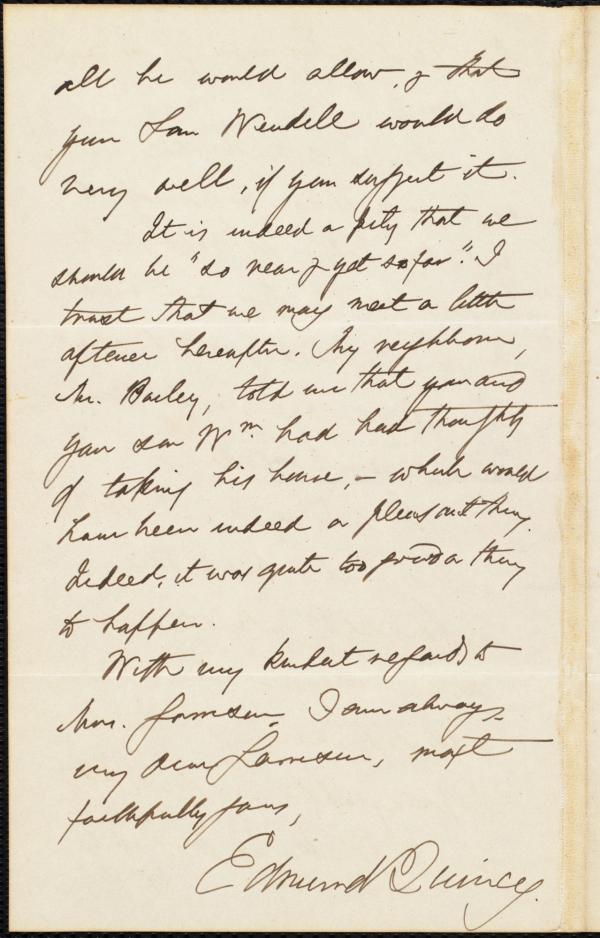 all he would allow, & that
your Son Wendell would do
very well, if you suggest it.
It is indeed a pity that we
should be "so near & yet so far". I
trust that we may meet a little
oftener hereafter. My neighbour,
Mr. Bailey, told me that you and
your son Wm. had had thoughts
of taking his house, – which would
have been indeed a pleasant thing.
Indeed, it was quite too good a thing
to happen.
With my kindest regards to
Mrs. Garrison, I am always,
my dear Garrison, most
faithfully yours,
Edmund Quincy.